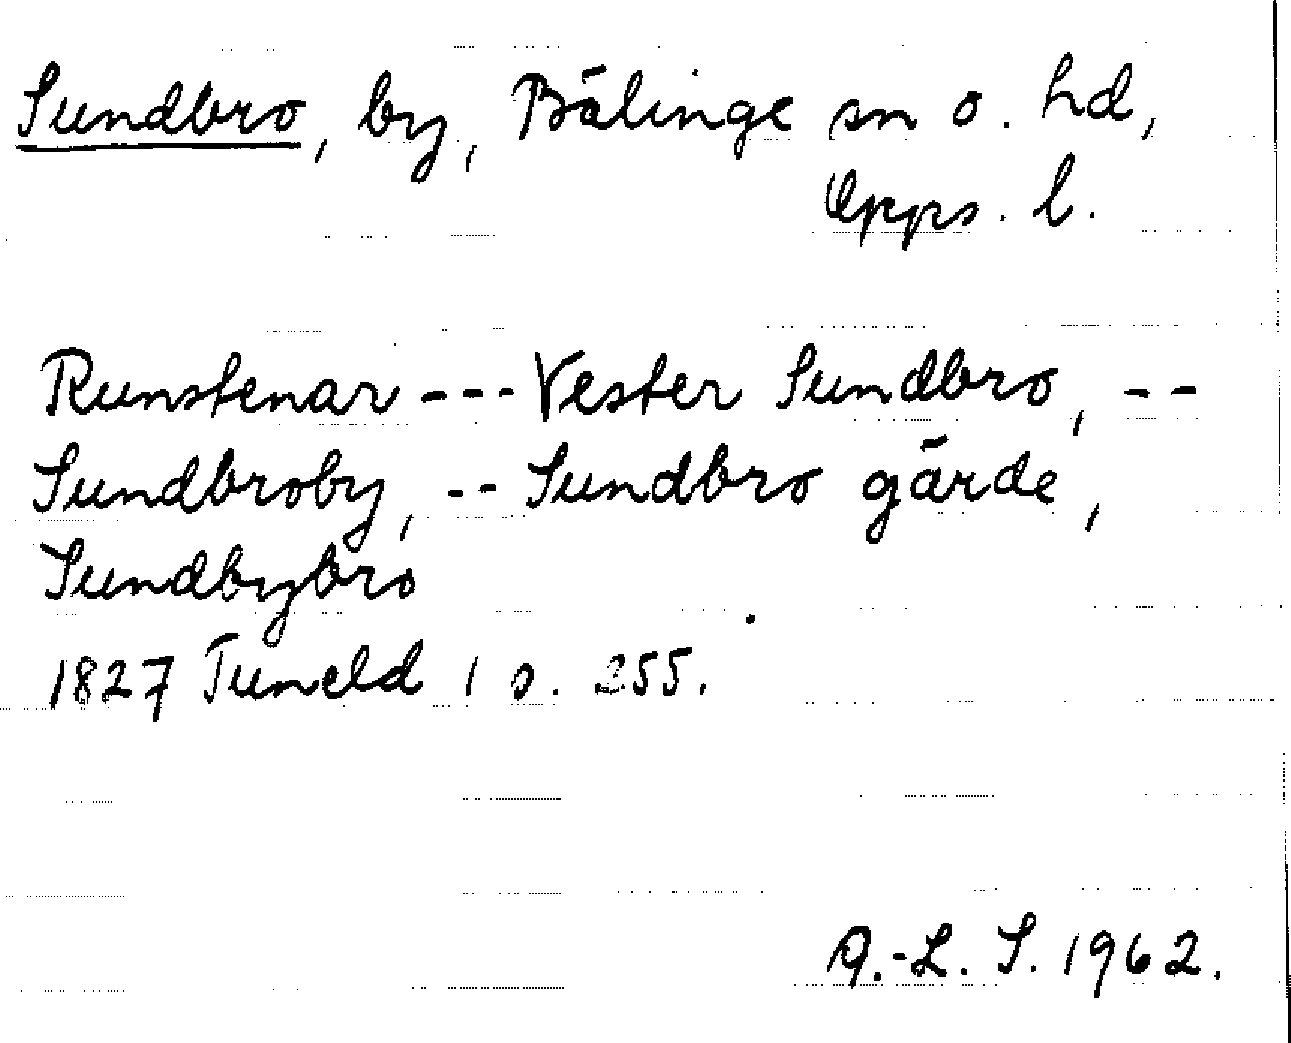 Sundbro, by, Bälinge sn o. hd,
Upps. l.
Runstenar --- Vester Sundbro, --
Sundbroby, -- Sundbro gärde,
Sundbybro
1827 Tuneld 1 s. 255.
A.-L. S. 1962.